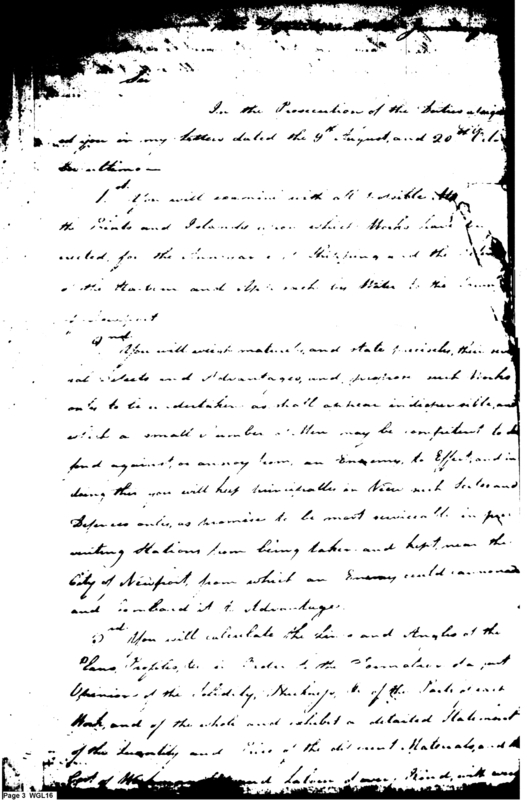 Sir
In the Prosecution of the Duties assign
ed you in my Letters dated the 9th August, and 20th
ultimo
1st You will examine with all possible
the Points and Islands upon which Works have
erected, for the of Shipping and the
of the Harbour and Approach by Water to the Town
of Newport
2nd You will weigh maturely, and state precisely, their seve
ral defects and Advantages, and propose such Works
only to be undertaken as shall appear indispensible, and
which a small Number of Men may be competent to de
fend against, or annoy from, an Enemy, to Effect, and in
doing this you will keep principally in View such Scites and
Defences only, as promise to be most serviceable in pre
venting Stations from being taken and kept, near the
City of Newport, from which an Enemy could cannonade
and Bombard it to Advantage.
3rd You will calculate the Lines and Angles of the
Plans, Profiles, &c in Order to the Formation of a just
Opinion of the Solidity, Thickness, &c of the Parts of each
Work, and of the whole and exhibit a detailed Statement
of the Quantity and Price of the different Materials, and the
Cost of Workmanship and Labour of every Kind, with
Page 3 WGL16